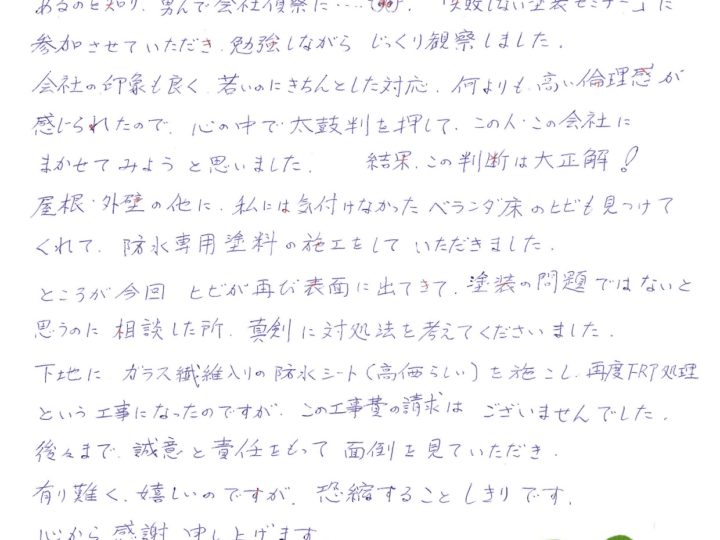 あるのと知り、勇んで会社偵察に……「失敗しない塗装セミナー」に
参加させていただき、勉強しながら じっくり観察しました。
会社の印象も良く、若いのにきちんとした対応、何よりも、高い倫理感が
感じられたので、心の中で太鼓判を押して、この人・この会社に
まかせてみよう と思いました。 結果、この判断は大正解!
屋根・外壁の他に、私には気付けなかったベランダ床のヒビも見つけて
くれて、防水専用塗料の施工をして いただきました。
ところが今回 ヒビが再び表面に出てきて、塗装の問題ではないと
思うのに 相談した所、真剣に対処法を考えてくださいました。
下地に ガラス繊維入りの防水シート(高価らしい)を施こし、再度FRP処理
という工事になったのですが、この工事費の請求は ございませんでした。
後々まで、誠意と責任をもって 面倒を見ていただき、
有り難く、嬉しいのですが、恐縮すること しきりです。
心から 感謝 申し上げます